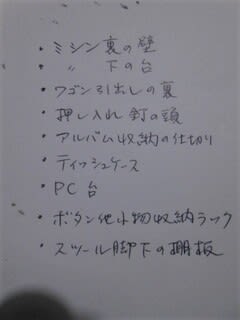 ・ミシン裏の壁
・〃 下の台
・ワゴン引出しの裏
・押し入れ釘の頭
・アルバム収納の仕切り
・ティッシュケース
・PC台
・ボタン他小物収納ラック
・スツール脚下の棚板